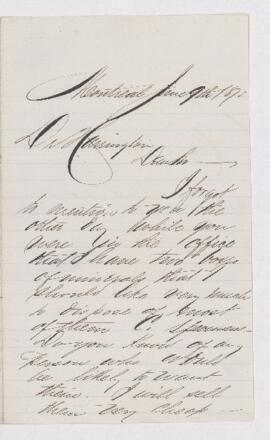 Montreal June 9th 187
Dr Harrington
Dear Sir
I forgot
to mention to you the
other day while you
were in the office
that I have two boxes
of minerals that I
should like very much
to dispose of most
of them specimens
Do you know of any
person who would
be likely to want
them. I will sell
them very cheap